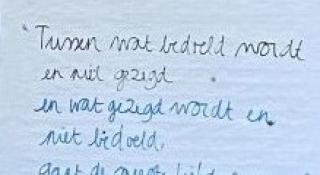 Tussen wat bedoeld wordt
en niet gezegd
en wat gezegd wordt en
niet bedoeld,
gaat de meeste liefde